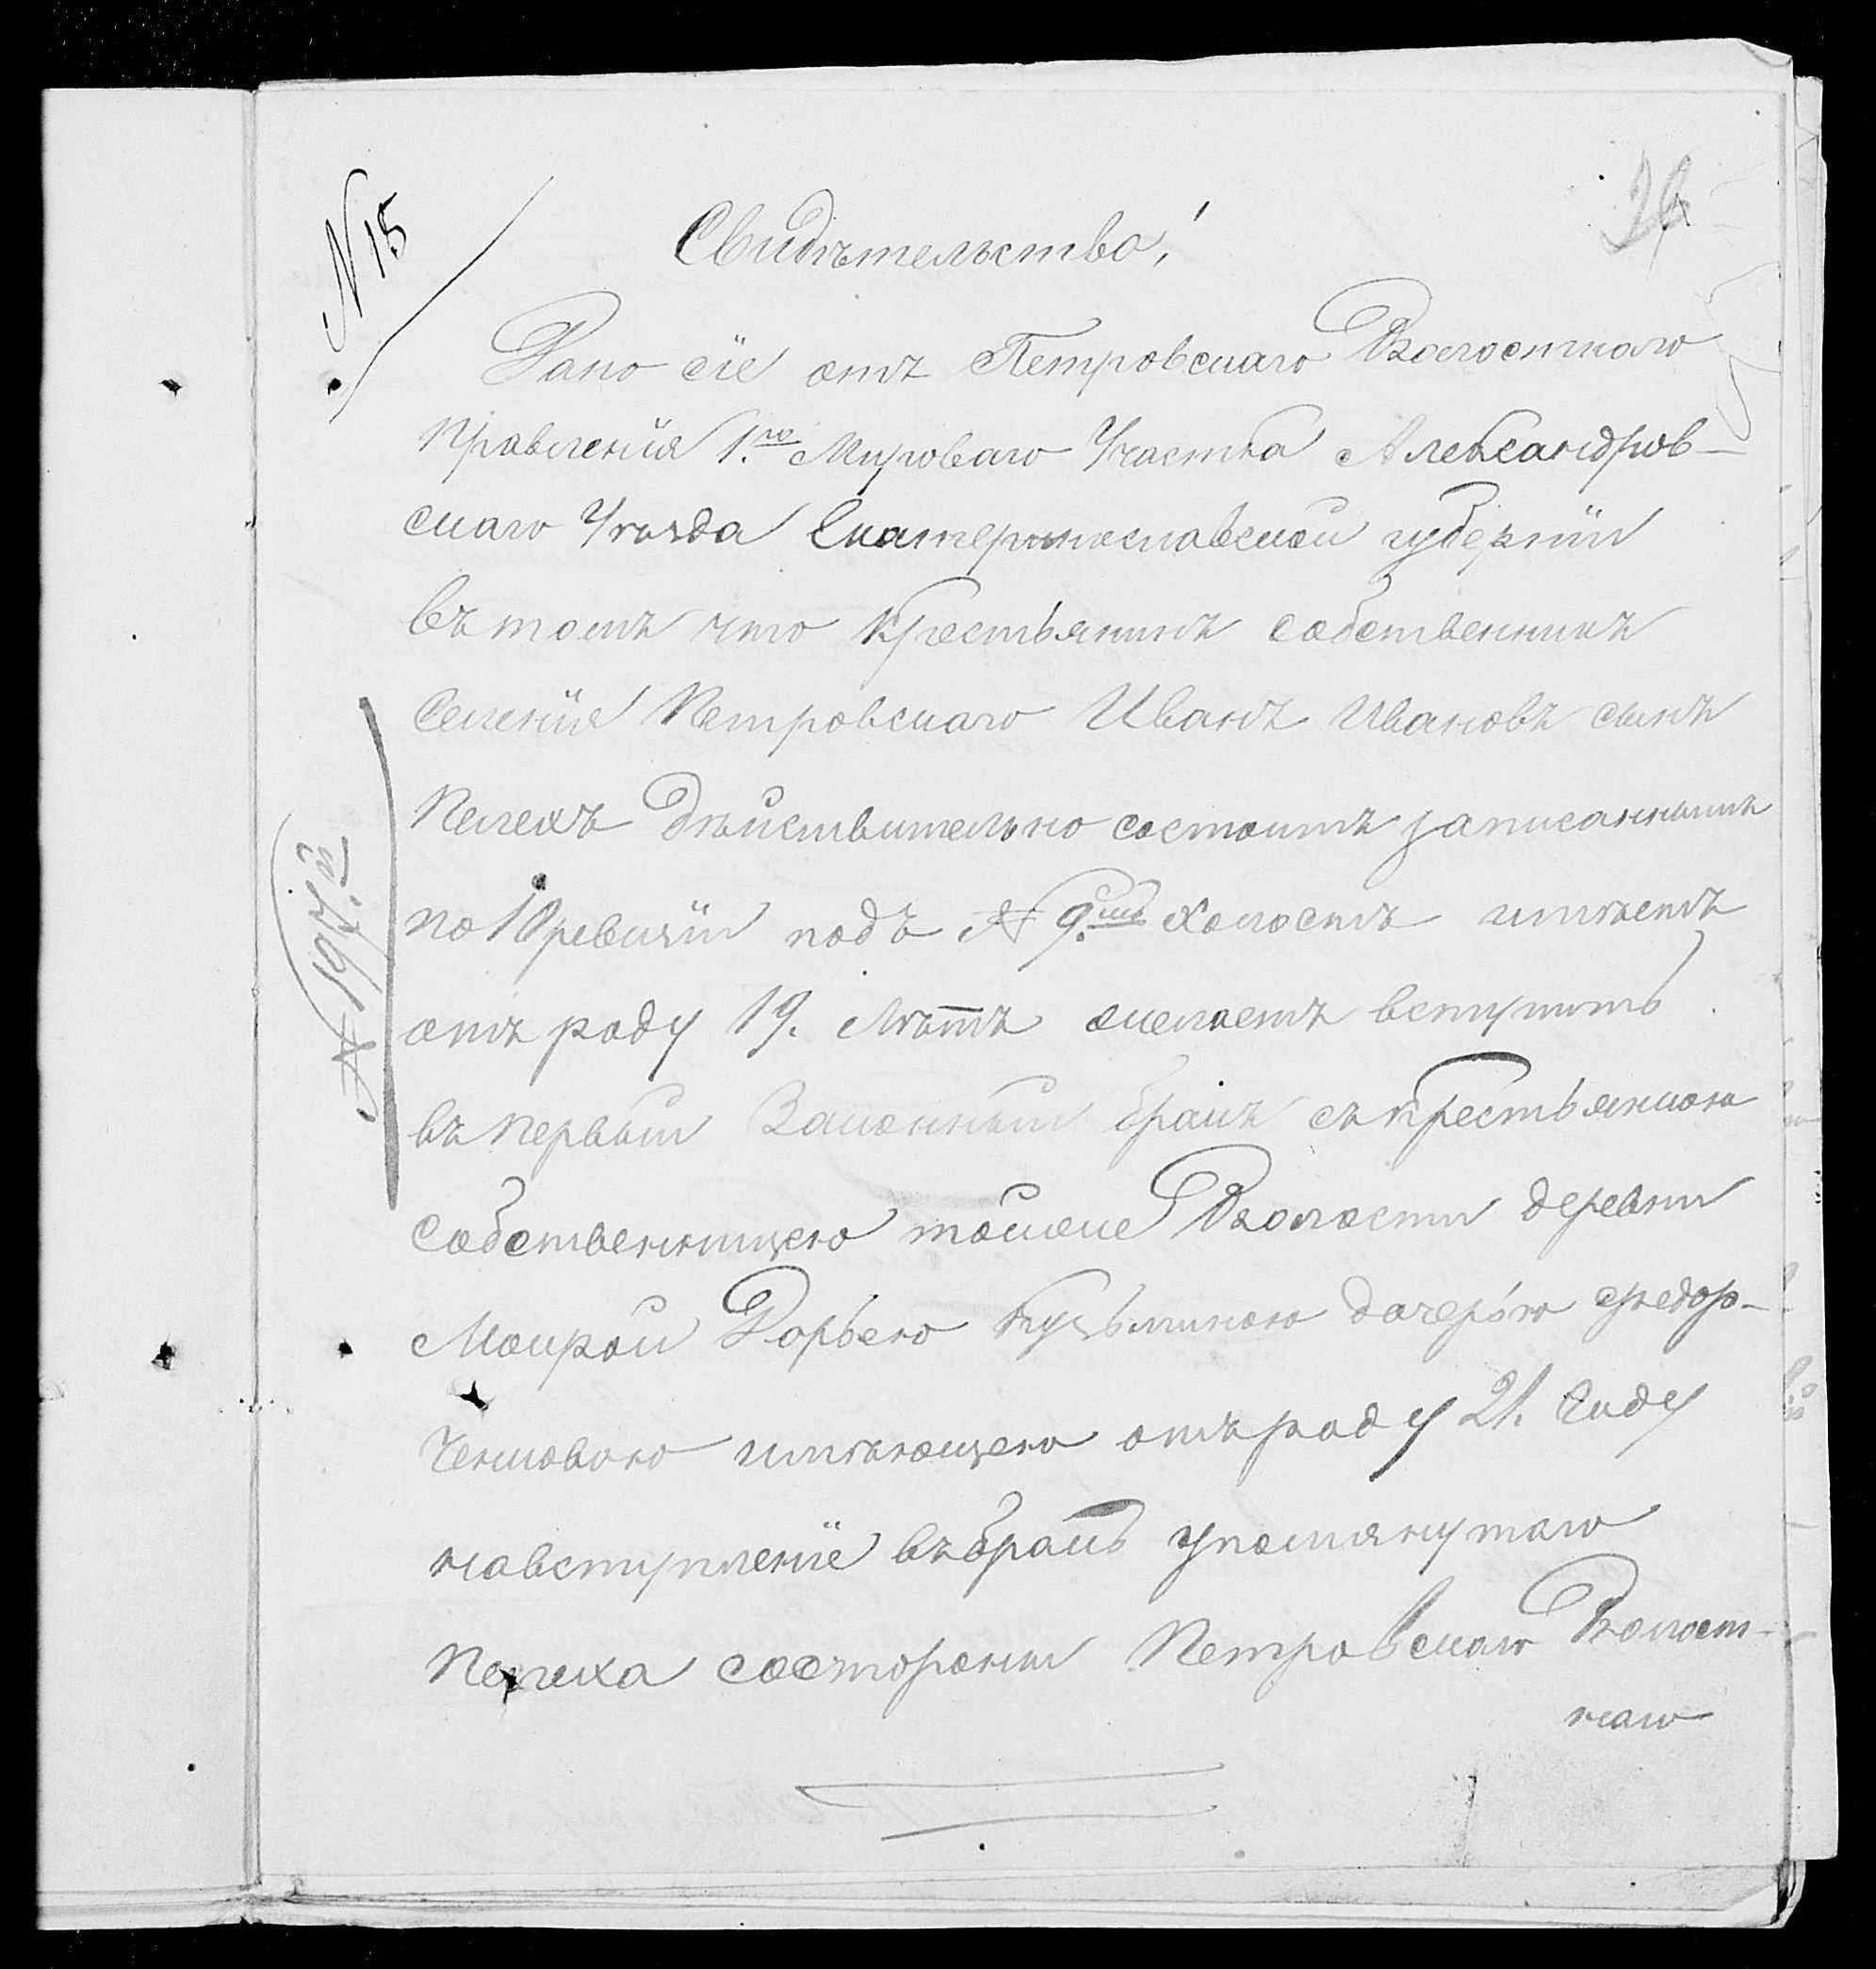 № 15
26
Свидѣтельство,
Дано сіе отъ Петровскаго Волостнаго
Правленія 1.го Мироваго Участка Александров-
скаго Уѣзда Екатеринославской губерніи
въ томъ что Крестьянинъ собственникъ
Селенія Петровскаго Иванъ Ивановъ сынъ
Пелехъ дѣйствительно состоитъ записаннымъ
по 10 ревизіи подъ № 9.мъ холостъ имѣетъ
отъ роду 19. лѣтъ желаетъ вступить
въ первый Законный бракъ съ крестьянкою
собственницею тойже Волости деревни
Мокрой Дарьею Кузьминою дочерью Федор-
ченковою имѣющею отъ роду 21. году
на вступленіе въ бракъ упомянутаго
Пелеха состороны Петровскаго Волост-
наго
№ 197.й